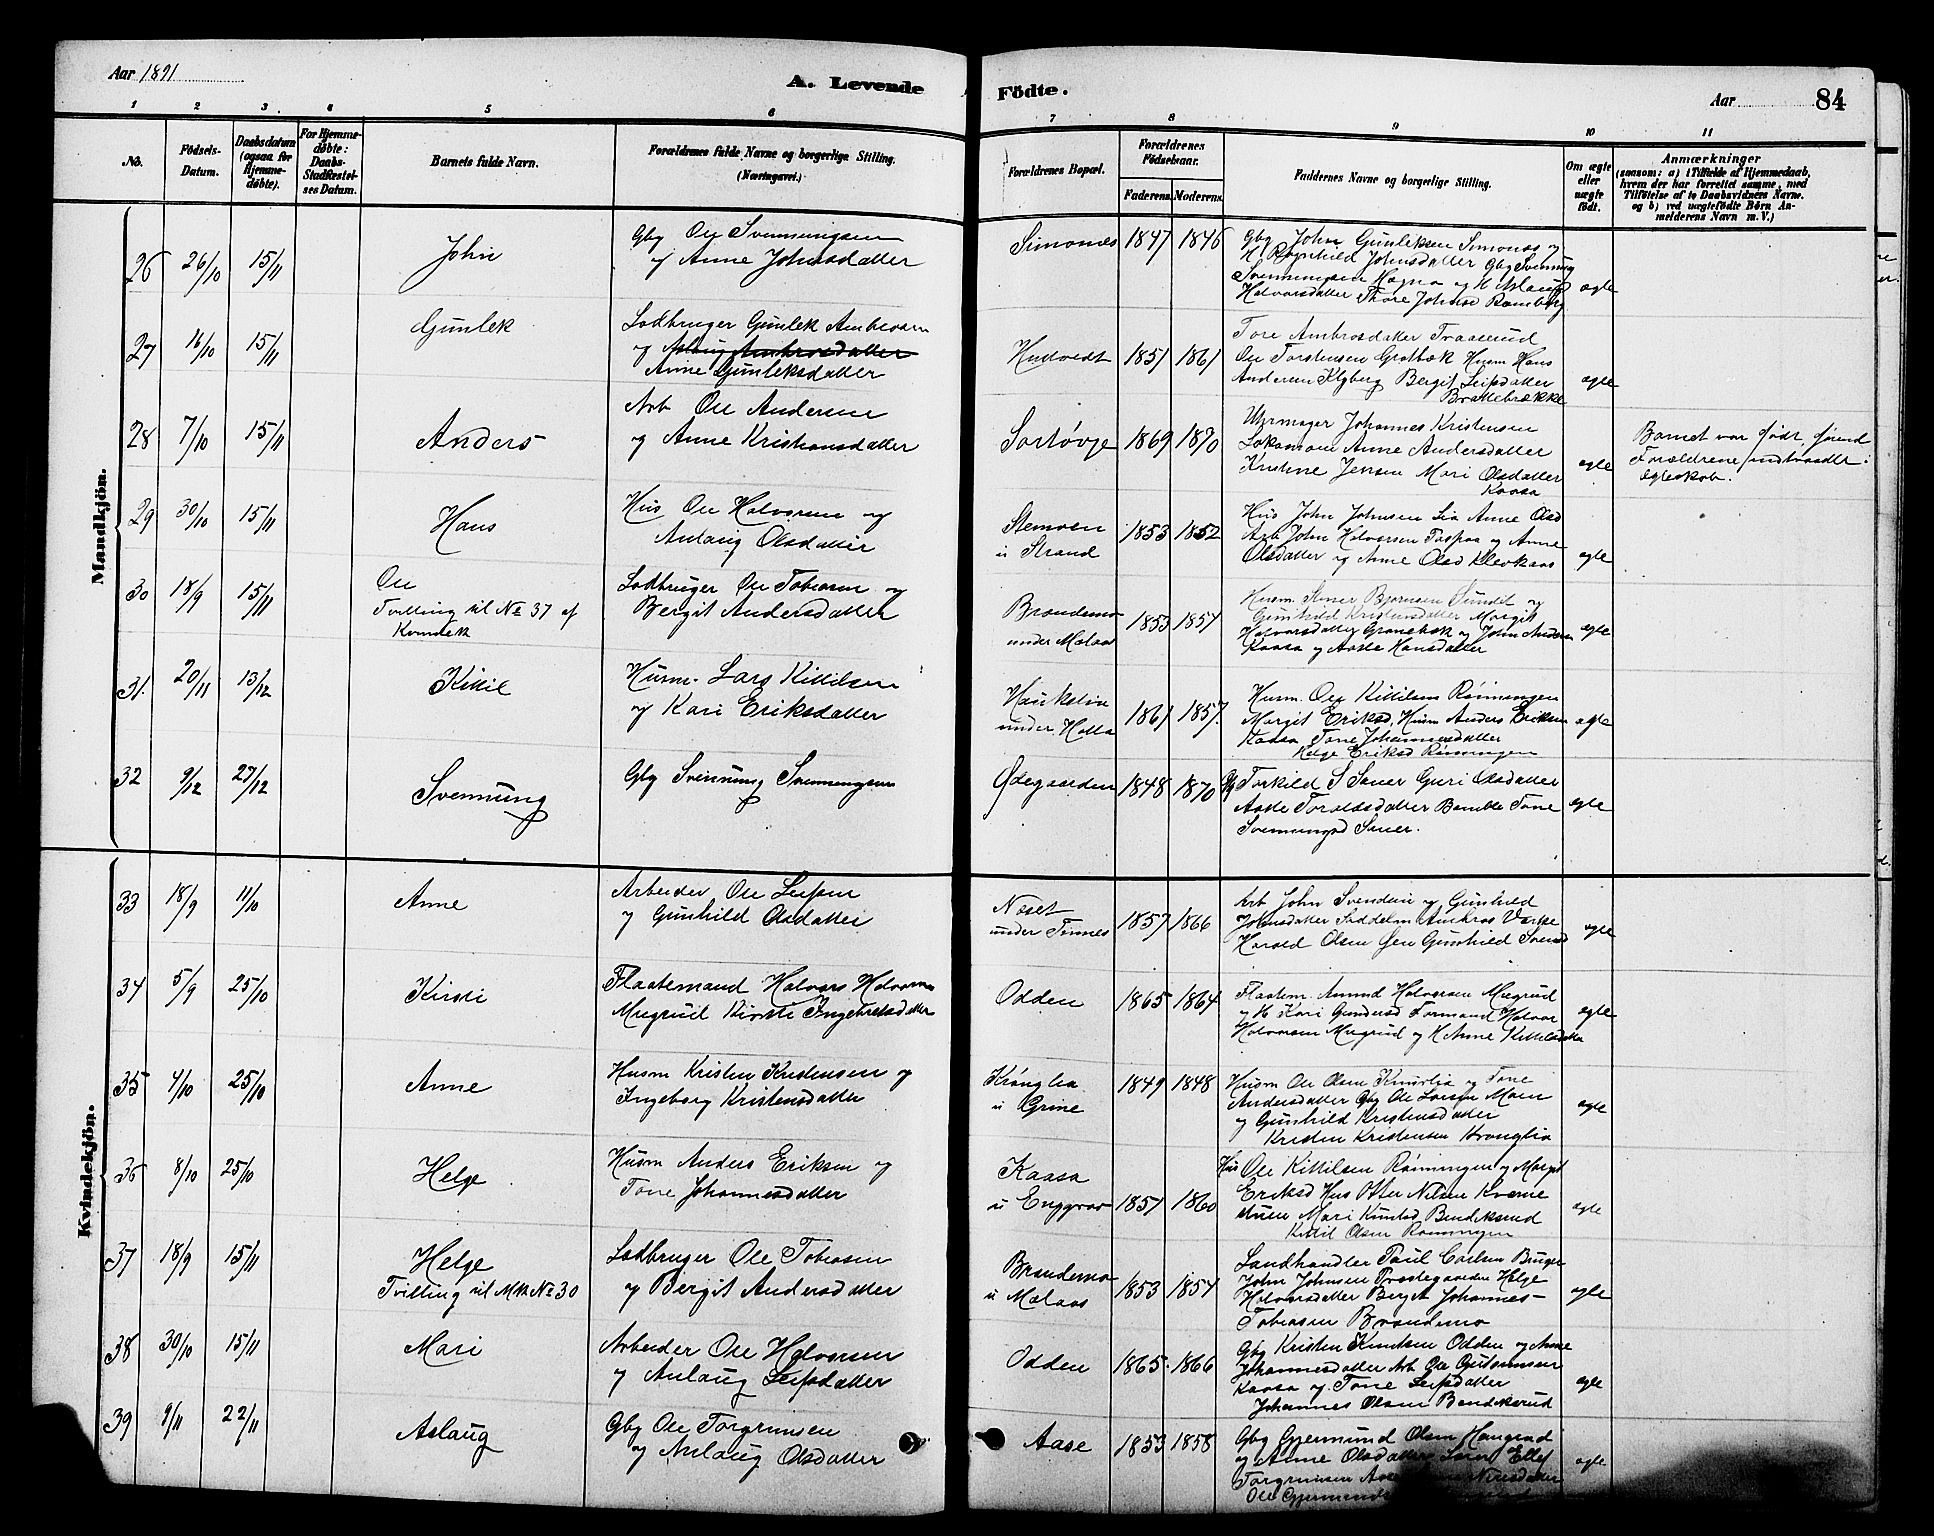 Aar 1891
A. Levende Födte.
Aar 84
1 2 3. 4 5 6 7 8 9 10 11
No.
Födsels-Datum.
Daabsdatum (ogsaa for Hjemme-döbte).
For Hjemme-döbte: Daabs-Stadfæstel-ses Datum.
Barnets fulde Navn.
Forældrenes fulde Navne og borgerlige Stilling.
(Næringsvei.)
Forældrenes Bopæl.
Forældrenes Födselsaar.
Faderens. Moderens.
Faddernes Navne og borgerlige Stilling.
Om ægte eller uægte födt.
Anmærkninger
(saasom: a) i Tilfælde af Hjemmedaab,
hvem der har forrettet samme, med
Tilföielse af to Daabsvidners Navne.
og b) ved uægtefödte Börn An-
melderens Navn m. V.)
Mandkjön.
26 26/10 15/11 John
Gbg Ole Svennungsen
og Anne Johnsdatter
Simones 1847 1846
Gbg John Gunleksen Simones og
H. Ragnhild Johnsdatter Gbg Svennung
Svennungsen Hagna og H Aslaug
Halvorsdatter Thore Johnsd Ramberg
ægte
27 16/10 15/11 Gunlek
Lodbruger Gunlek Ambrosen
og Aslaug Ambrosdatter
Anne Gunleksdatter
Hudvedt 1851 1861
Tore Ambrosdatter Traaserud
Ole Torstensen Grotbæk Husm Hans
Andersen Klyberg Bergit Leifsdatter
Brattebrække
ægte
28 7/10 15/11 Anders
Arb Ole Andersen
og Anne Kristensdatter
Sortövje 1869 1870
Uhrmager Johannes Kristensen
Anne Andersdatter
Kristine Jensen Mari Olsdatter
Kaasa
ægte
Barnet var födt, förend
Forældrene indtraadte i
Ægteskab.
29 30/10 15/11 Hans
Hus Ole Halvorsen og
Anlaug Olsdatter
Stemoen
u Strand
1853 1852
Hus John Johnsen Lia Anne Olsd
Arb John Halvorsen og Anne
Olsdatter og Anne Olsd Klevkaas
ægte
30 18/9 15/11 Ole
Tvilling til No 37 af
Kvindek
Lodbruger Ole Tobiasen og
Bergit Andersdatter
Brandemo
under Melaas
1853 1854
Husm. Bjørnsen og
Gunhild Kristensdatter Margit
Halvorsdatter Granebæk og John Andersen
Kaasa og Aaste Hansdatter
ægte
31. 20/11 13/12 Kittil
Husm. Lars Kittilsen
og Kari Eriksdatter
Haukelia
under Holla
1861 1857.
Husm. Ole Kittilsen Rönningen
Margit Eriksd. Husm Anders Eriksen
Kaasa Tone Johannesdatter
Helge Eriksd Rønningen
ægte
32 9/12 27/12 Svennung
Gbg Svennung Svennungsen
Ödegaarden 1848 1870
Gbg Torkild S Saner Guri Olsdatter
Aaste Toraldsdatter Bamble Tone
Svennungsd Saner.
ægte
Kvindekjön.
33 18/9 11/10 Anne
Arbeider Ole Leifsen
og Gunhild Olsdatter
Næset
under Tinnes
1857 1866
Arb John Svendsen og Gunhild
Johnsdatter Saddelm Ambros Værke
Harald Olsen Øen Gunhild Svensd
ægte
34 5/9 25/10 Kirsti
Flaatemand Halvors Halvorsen
Mugrud Kirsti Ingebretsdatter
Odden 1865 1864
Flaatem. Amund Halvorsen Mugrud
og H Kari Gundersd Formand Halvor
Halvorsen Mugrud og H Anne Kittilsdatter
ægte
35 4/10 25/10 Anne
Husm Kristen Kristensen og
Ingeborg Kristensdatter
Krönglia
u Grine
1849 1848
Husm Ole Olsen Knurlia og Tone
Andersdatter Gbg Ole Larsen Moen
og Gunhild Kristensdatter
Kristen Kristensen Kronglia
ægte
36 8/10 25/10 Helge
Husm Anders Eriksen og
Tone Johannesdatter
Kaasa
u Enggrav
1857 1860
Hus Ole Kittilsen Rönningen og Margit
Eriksd Hus Otter Nilsen Kverne
stuen Mari Knutsd Bendiksrud
Kittil Olsen Rönningen
ægte
37 18/9 15/11 Helge
Tvilling til Mk No 30
Lodbruger Ole Tobiasen
og Bergit Andersdatter
Brandemo
u Melaas
1853 1854
Landhandler Paul Carlsen Bruger
John Johnsen Præstegaarden Helge
Halvorsdatter Berget Johannes
Tobiasen Brandemo
ægte
38 30/10 15/11 Mari
Arbeider Ole Halvorsen
og Anlaug Leifsdatter
Odden 1865. 1866
Gbg Kristen Knutsen Odden og Anne
Johannesdatter Arb Ole Gutormsen
Kaasa og Tone Leifsdatter
Johannes Olsen Bendiksrud
ægte
39 9/11 22/11 Aslaug
Gbg Ole Torgrimsen
og Anlaug Olsdatter
Aase 1853 1858
Gbg Gjermund Olsen Haugrud
og Anne Olsdatter
Torgrimsen Nilsdatter
Ole Gjermunds
ægte